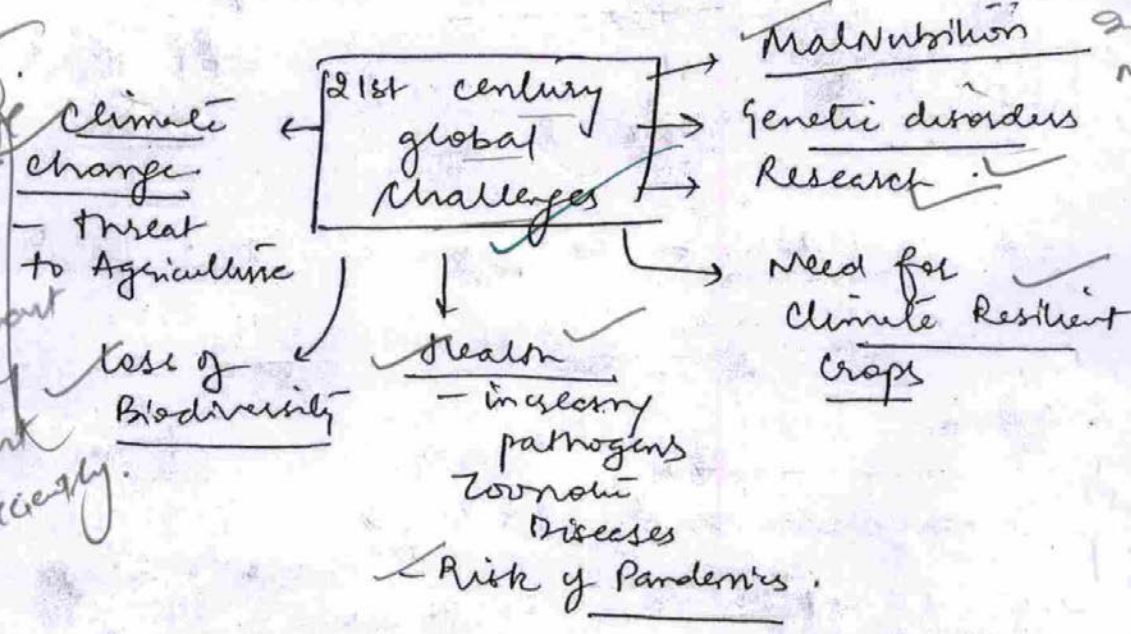 21st century
global
challenges
Climate
change
- threat
to Agriculture
loss of
Biodiversity
Health
- increasing
pathogens
Zoonotic
Diseases
Risk of Pandemics.
MalNutrition
Genetic disorders
Research.
Need for
Climate Resilient
Crops